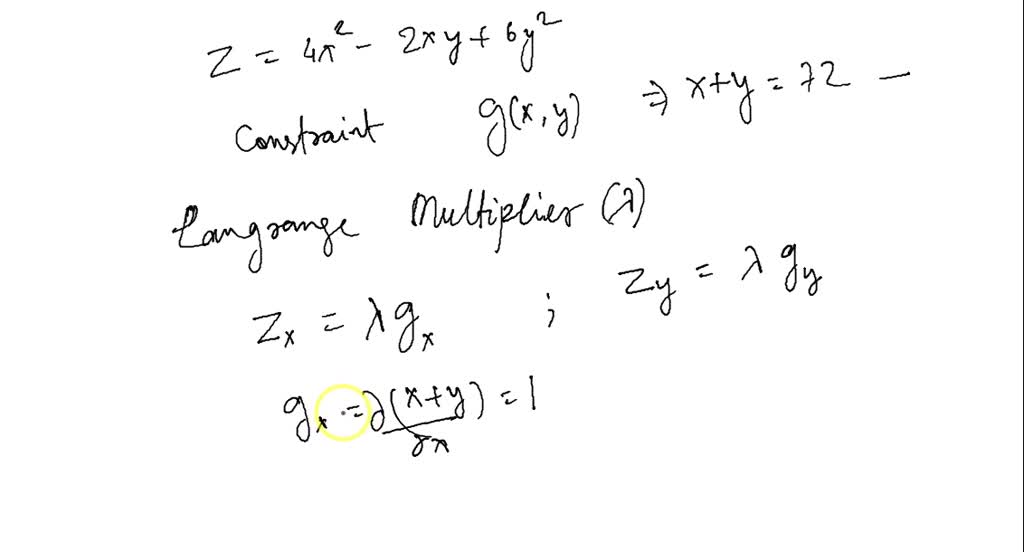 Z = 4x² - 2xy + 6y²
Constraint g(x, y) ⇒ x+y = 72 —
Langrange Multiplier (λ)
Zₓ = λ gₓ ; Zy = λ gy
gₓ = ∂(x+y)/∂x = 1